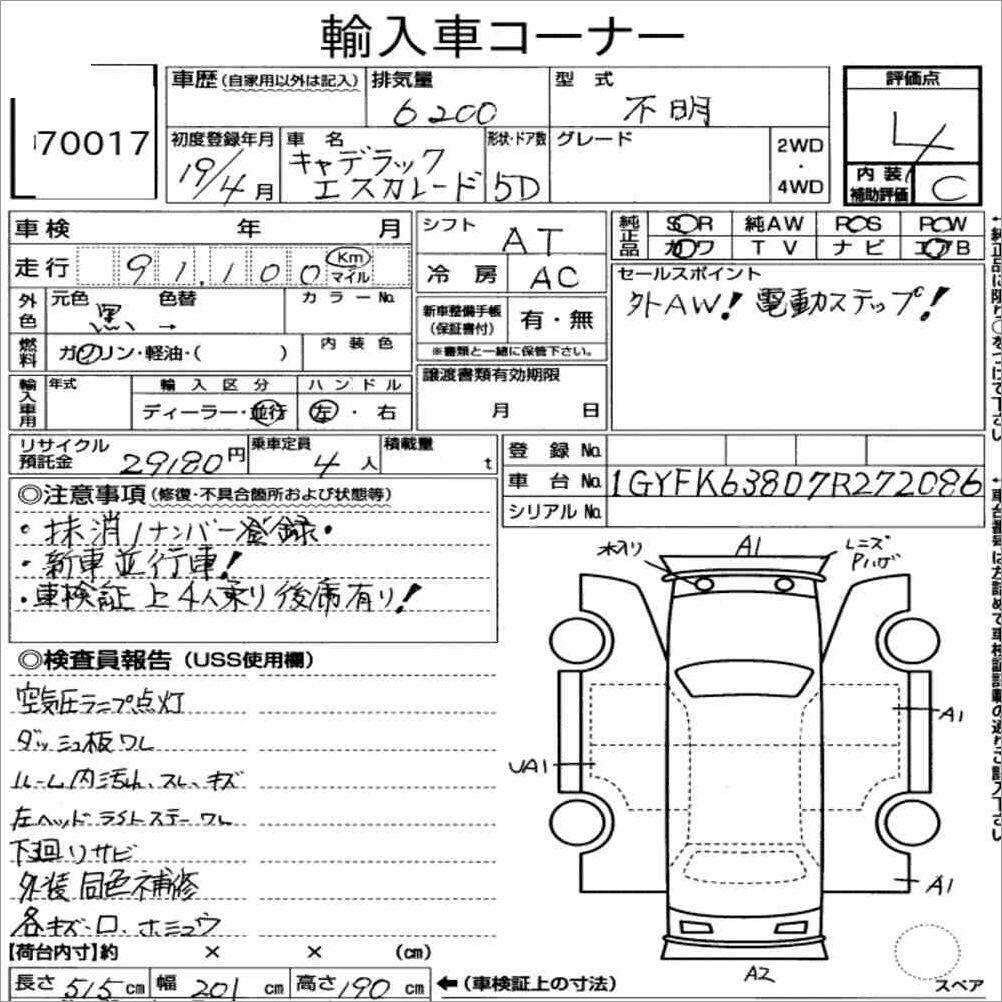 輸入車コーナー
70017
車歴(自家用以外は記入) 排気量 型式 評価点
6200 不明 4
初度登録年月 車名 形状・ドア数 グレード 2WD・4WD
19/4月 キャデラック エスカレード 5D
内装補助評価 C
車検 年 月 シフト AT
純正品 SOR 純AW POS POW
カワ TV ナビ エアB
走行 91,100 Km マイル 冷房 AC
外色 元色 黒 色替 → カラーNo.
セールスポイント
外AW! 電動ステップ!
新車整備手帳(保証書付) 有・無
※書類と一緒に保管下さい。
燃料 ガソリン・軽油・( ) 内装色
譲渡書類有効期限
月 日
輸入車用 年式 輸入区分 ハンドル
ディーラー・並行 左・右
リサイクル預託金 29180円 乗車定員 4人 積載量 t
登録No.
車台No. 1GYFK63807R272086
シリアルNo.
◎注意事項(修復・不具合箇所および状態等)
・抹消/ナンバー登録・
・新車並行車!
・車検証上4人乗り後席有り!
◎検査員報告(USS使用欄)
空気圧ランプ点灯
ダッシュ板ワレ
ルーム内汚れ、スレ、キズ
左ヘッドライトステーワレ
下廻りサビ
外装同色補修
各キズ・ロ、ホミュウ
水入り A1 レンズPハゲ
A1
UA1
A1
A2
スペア
【荷台内寸】約 × × (cm)
長さ 515 cm 幅 201 cm 高さ 190 cm ←(車検証上の寸法)